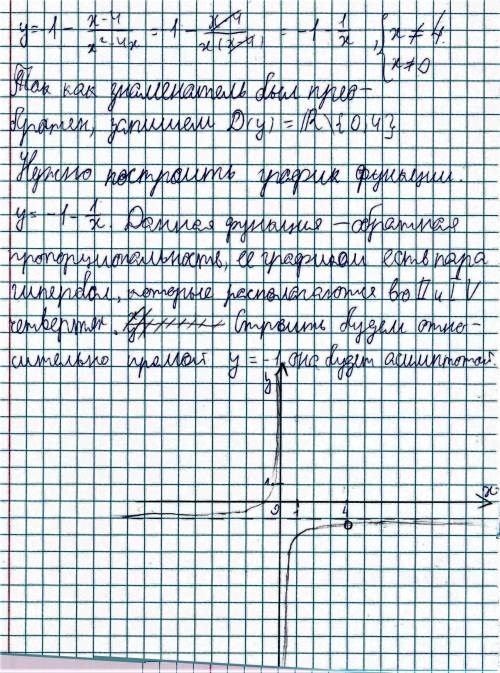 y = 1 - (x-4)/(x²-4x) = 1 - (x-4)/(x(x-4)) = -1 - 1/x , { x ≠ 4. x ≠ 0
Так как знаменатель был преоб-
бразен, запишем D(y) = R \ {0,4}
Нужно построить график функции.
y = -1 - 1/x. Данная функция – обратная
пропорциональность, ее графиком есть пара
гипербол, которые располагаются во II и IV
четвертях. Строить будем отно-
сительно прямой y = -1, она будет асимптотой.
y
x
1
0 1 4